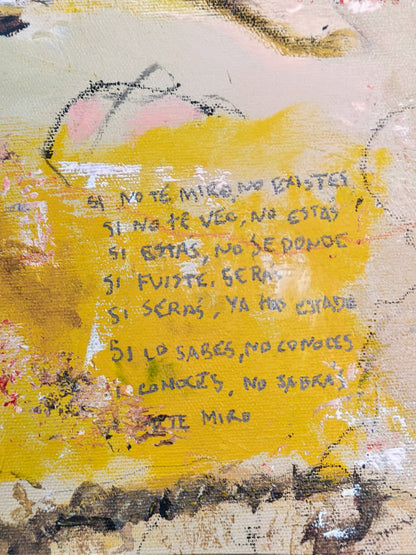 SI NO TE MIRO, NO EXISTES
SI NO TE VEO, NO ESTAS
SI ESTAS, NO SE DONDE
SI FUISTE, SERAS
SI SERAS, YA HAS ESTADO
SI LO SABES, NO CONOCES
I CONOCES, NO SABRAS
TE MIRO